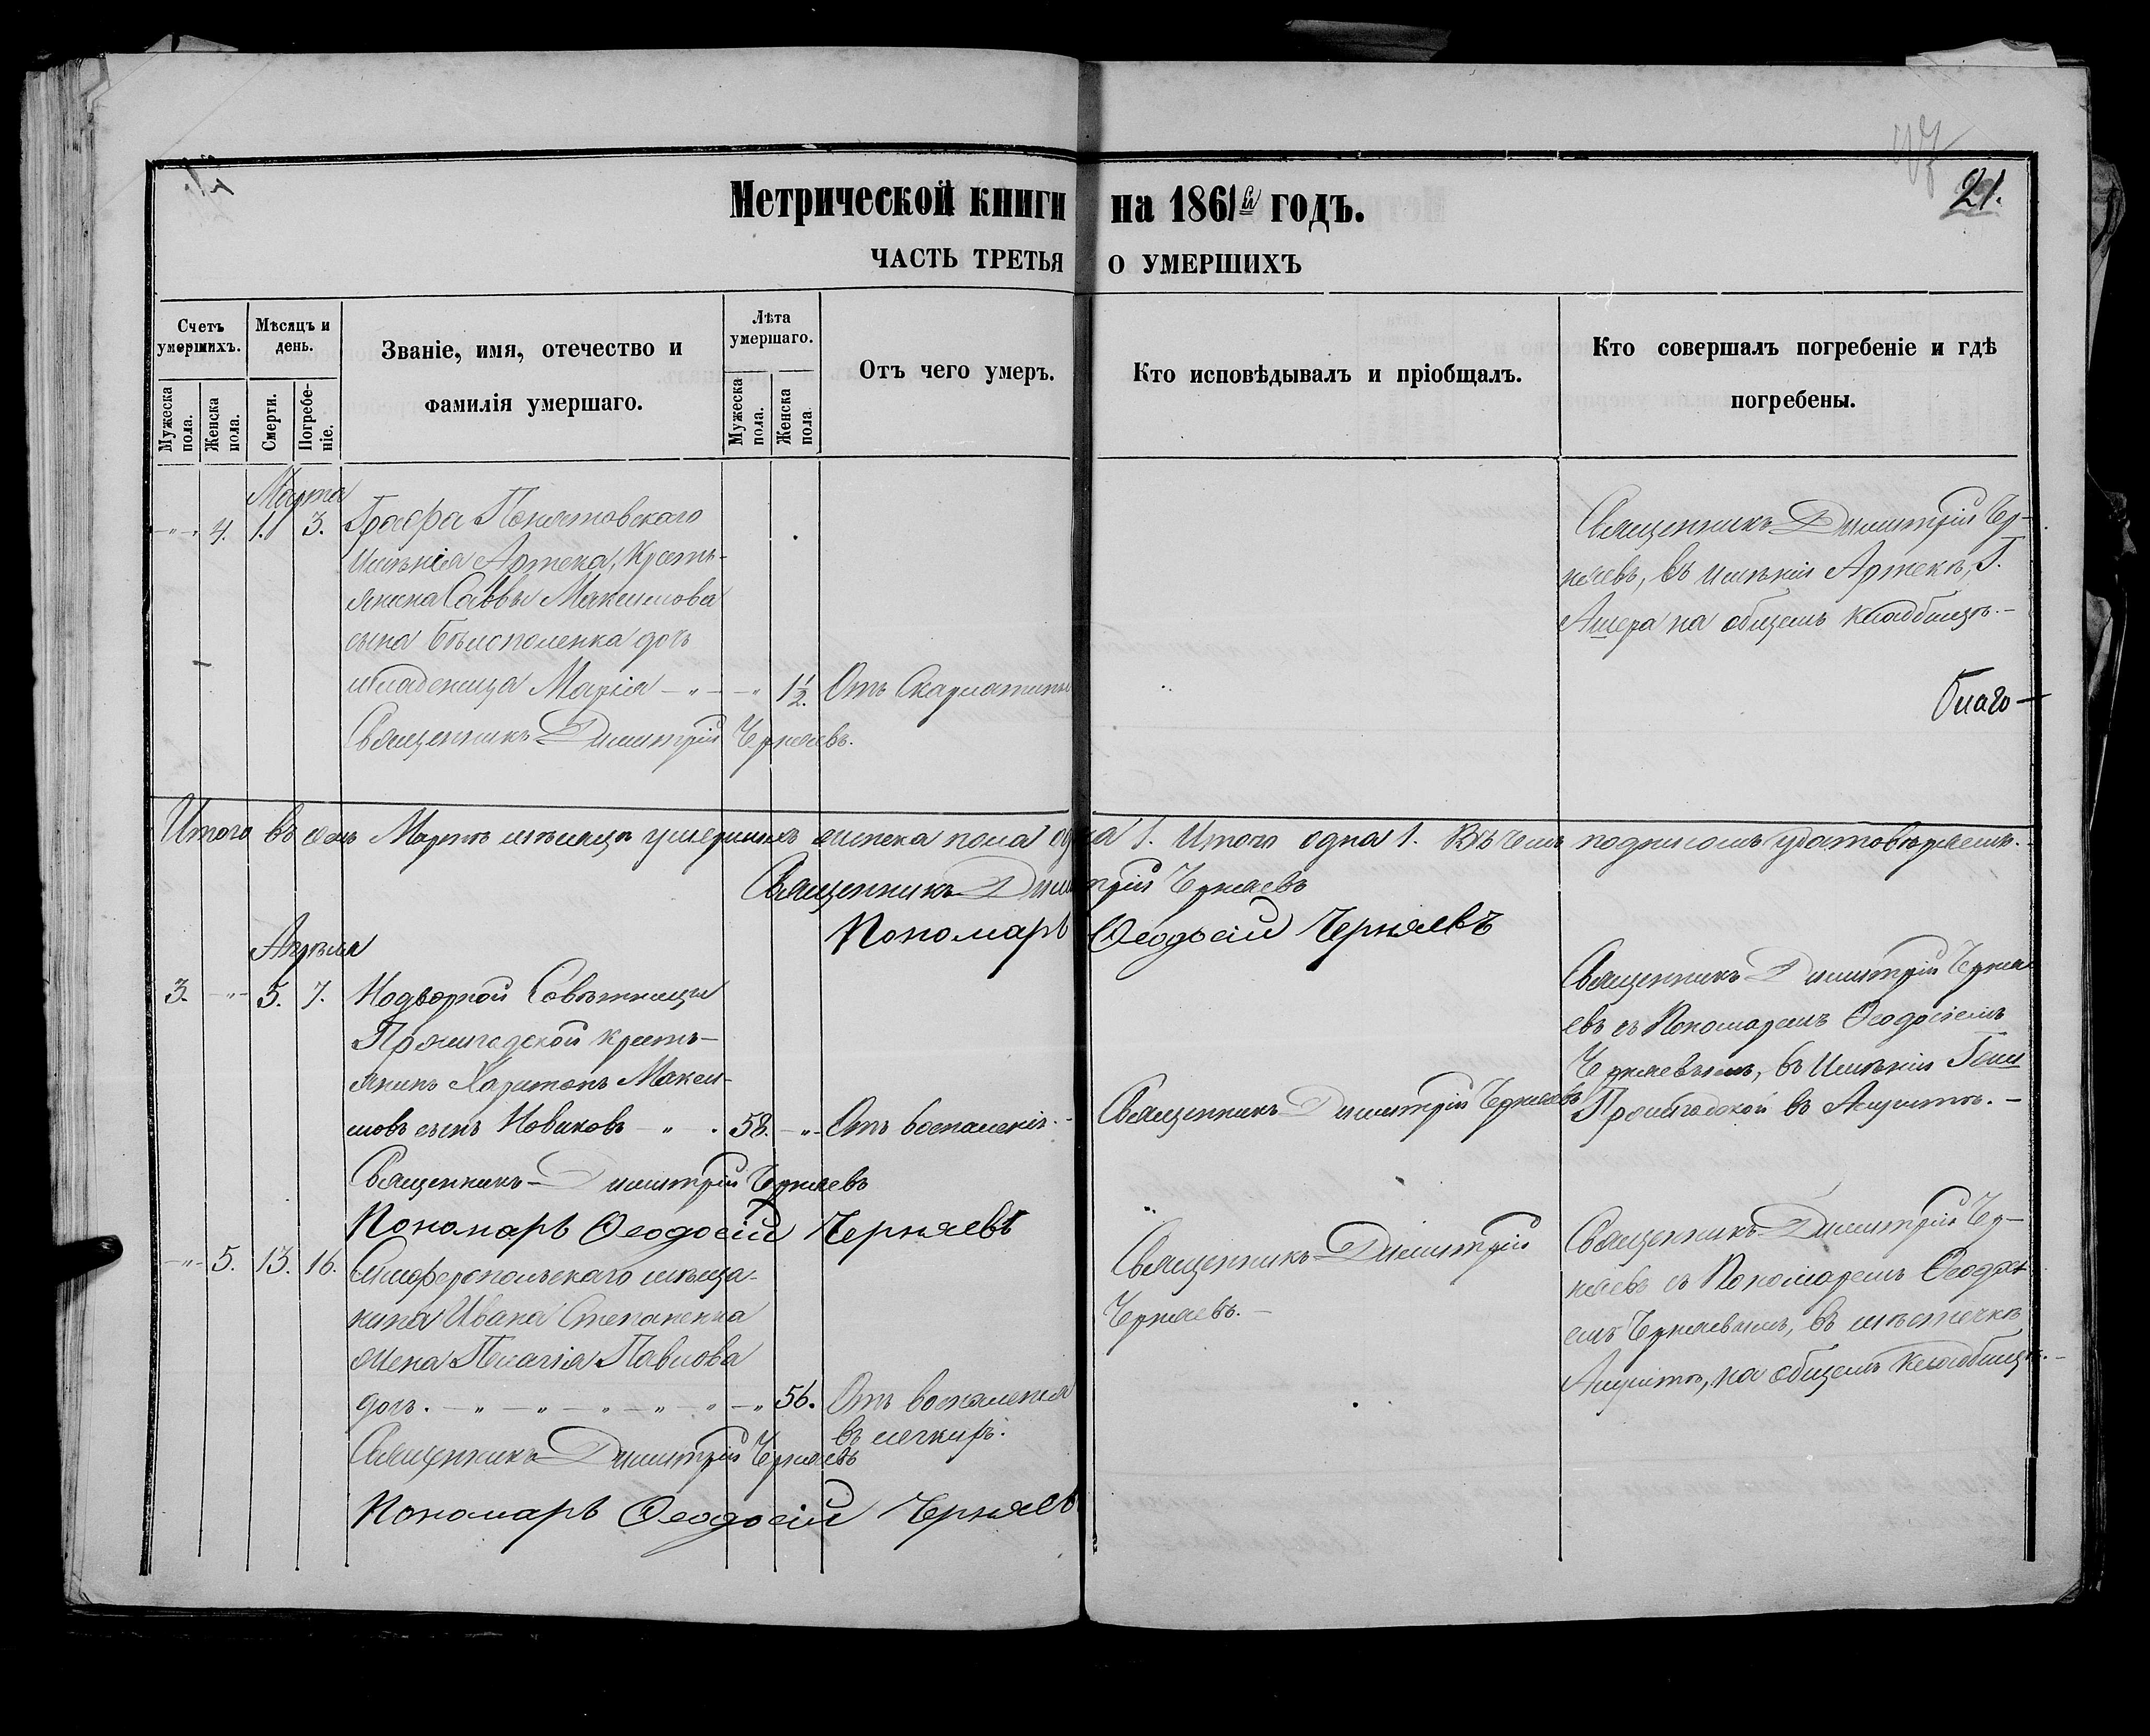 21.
Метрической книги на 1861й годъ.
ЧАСТЬ ТРЕТЬЯ О УМЕРШИХЪ
Счетъ умершихъ.
Мѣсяцъ и день.
Званіе, имя, отечество и фамилія умершаго.
Лѣта умершаго.
Отъ чего умеръ.
Кто исповѣдывалъ и пріобщалъ.
Кто совершалъ погребеніе и гдѣ погребены.
Мужеска пола.
Женска пола.
Смерти.
Погребеніе.
Мужеска пола.
Женска пола.
Марта
-"- 4. 1. 3. Графа Понятовскаго
имѣнія Артека, Кресть-
янина Саввы Максимова
сына дочь
младеница Марія - " - - " 1½. Отъ Скарлатины
Священникъ Димитрій Черняевъ.
Священникъ Димитрій Чер-
няевъ, въ имѣніи Артекъ, Г.
на общемъ кладбищѣ.-
Благо-
Итого въ семъ Мартѣ мѣсяцѣ умершихъ женска пола одна 1. Итого одна 1. Въ чемъ подписомъ удостовѣряемъ.
Священникъ Димитрій Черняевъ
Пономарь Ѳеодосій Черняевъ
Апрѣля
3. -"- 5. 7. Надворной Совѣтницы
кресть-
янинъ Харитонъ Макси-
мовъ сынъ Новиковъ - " - 58. -"- Отъ воспаленія.-
Священникъ Димитрій Черняевъ
Пономарь Ѳеодосій Черняевъ
Священникъ Димитрій Черняевъ
Священникъ Димитрій Черня-
евъ съ Пономаремъ Ѳеодосіемъ
Черняевымъ, въ имѣніи Гжи
въ Алуштѣ.-
-"- 5. 13. 16. Симферопольскаго мѣща-
нина Ивана Степаненка
жена Пелагія Павлова
дочь. - " - " - " - " - " - " 56. Отъ воспаленія
въ легкихъ.
Священникъ Димитрій Черняевъ
Пономарь Ѳеодосій Черняевъ
Священникъ Димитрій
Черняевъ.-
Священникъ Димитрій Чер-
няевъ съ Пономаремъ Ѳеодосі-
емъ Черняевымъ, въ мѣстечкѣ
Алуштѣ, на общемъ кладбищѣ.-